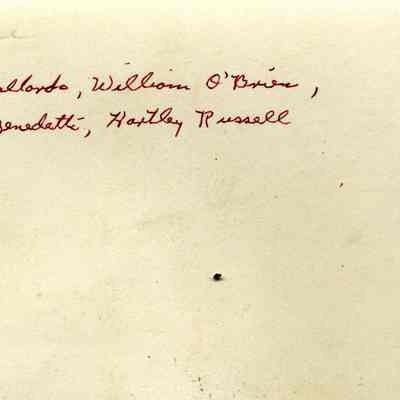 allardo, William O'Brien,
Benedatti, Hartley Russell